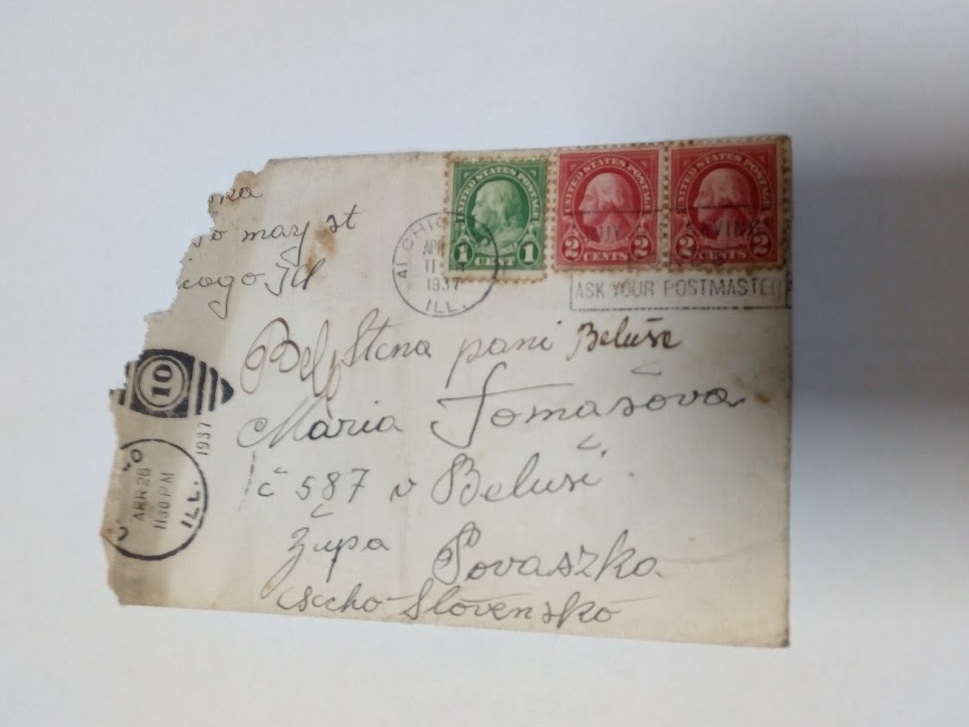 May st
Ill
UNITED STATES POSTAGE
1 CENT 1
UNITED STATES POSTAGE
2 CENTS 2
UNITED STATES POSTAGE
2 CENTS 2
APR
11
1937
ILL.
ASK YOUR POSTMASTER
pani Beluše
Maria Tomašova
č 587 v Beluši
župa Povaszka
Slovensko
10
1937
APR 26
1130 PM
ILL.